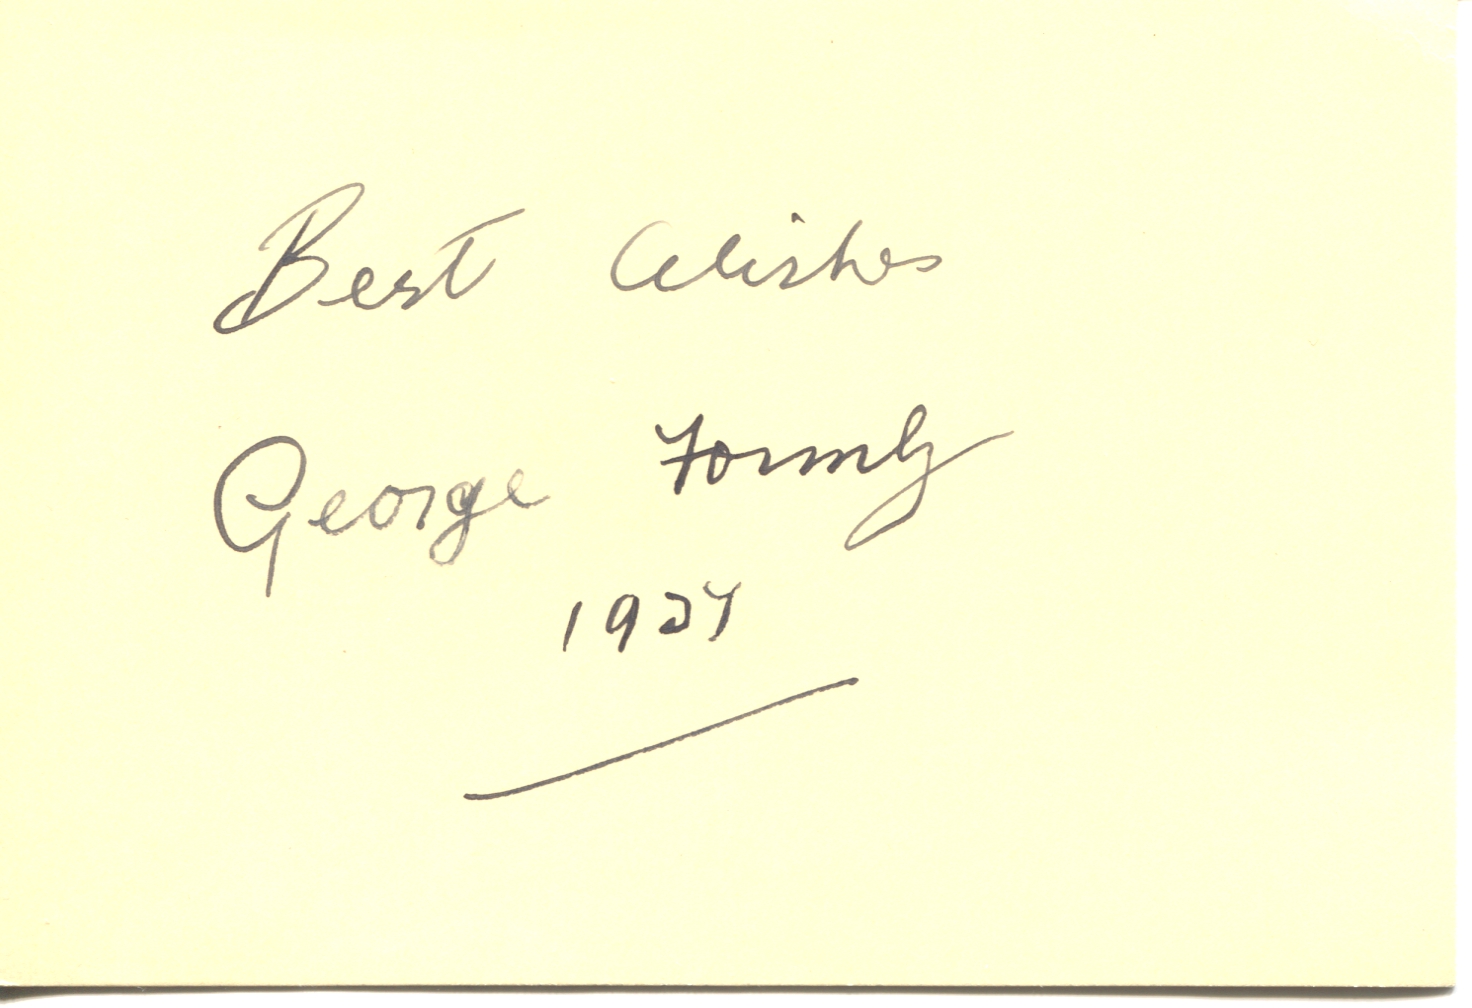 Best Wishes
George Formby
1927